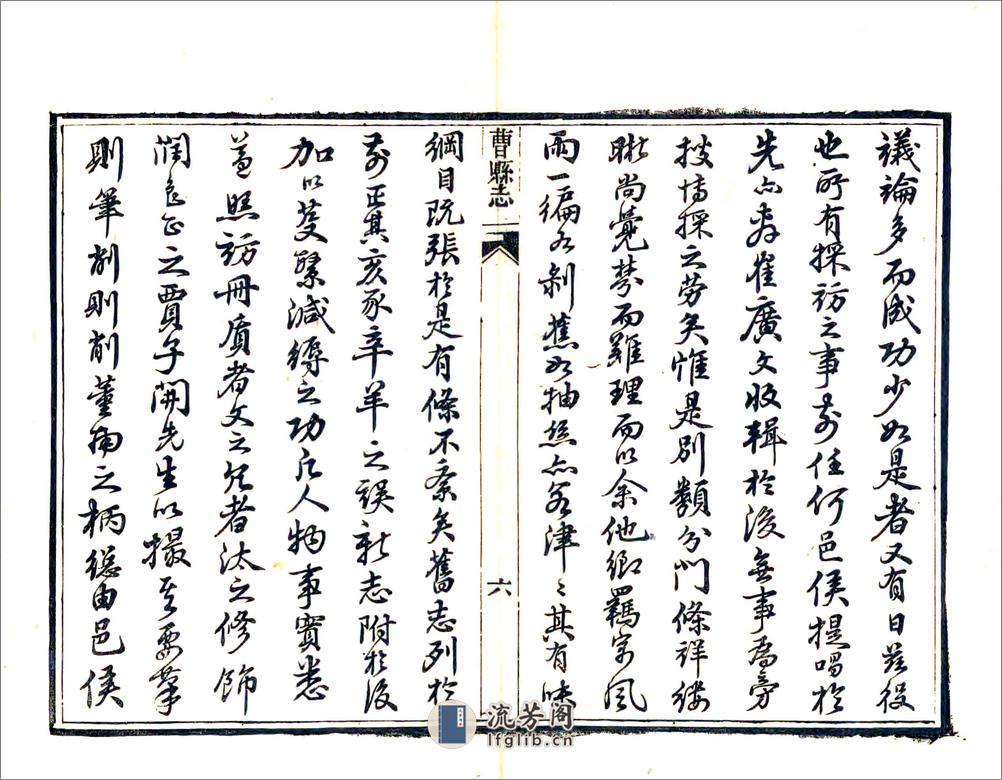 議論多而成功少如是者又有日茲役
也所有採訪之事前任何邑侯提唱於
先而崔廣文收輯於後無事為旁
搜博採之勞矣惟是別類分門條詳縷
晰尚覺棼而難理而以余他鄉羈寄風
雨一編如剝蕉如抽絲亦若津〻其有味
曹縣志
六
綱目既張於是有條不紊矣舊志列於
前正其亥豕辛羊之誤新志附於後
加以芟繁減縟之功凡人物事實悉
蓋照訪冊質者文之冗者汰之修飾
潤色之賈子開先生以撮至要筆
則筆削則削董摛之柄總由邑侯
流芳阁
lfglib.cn